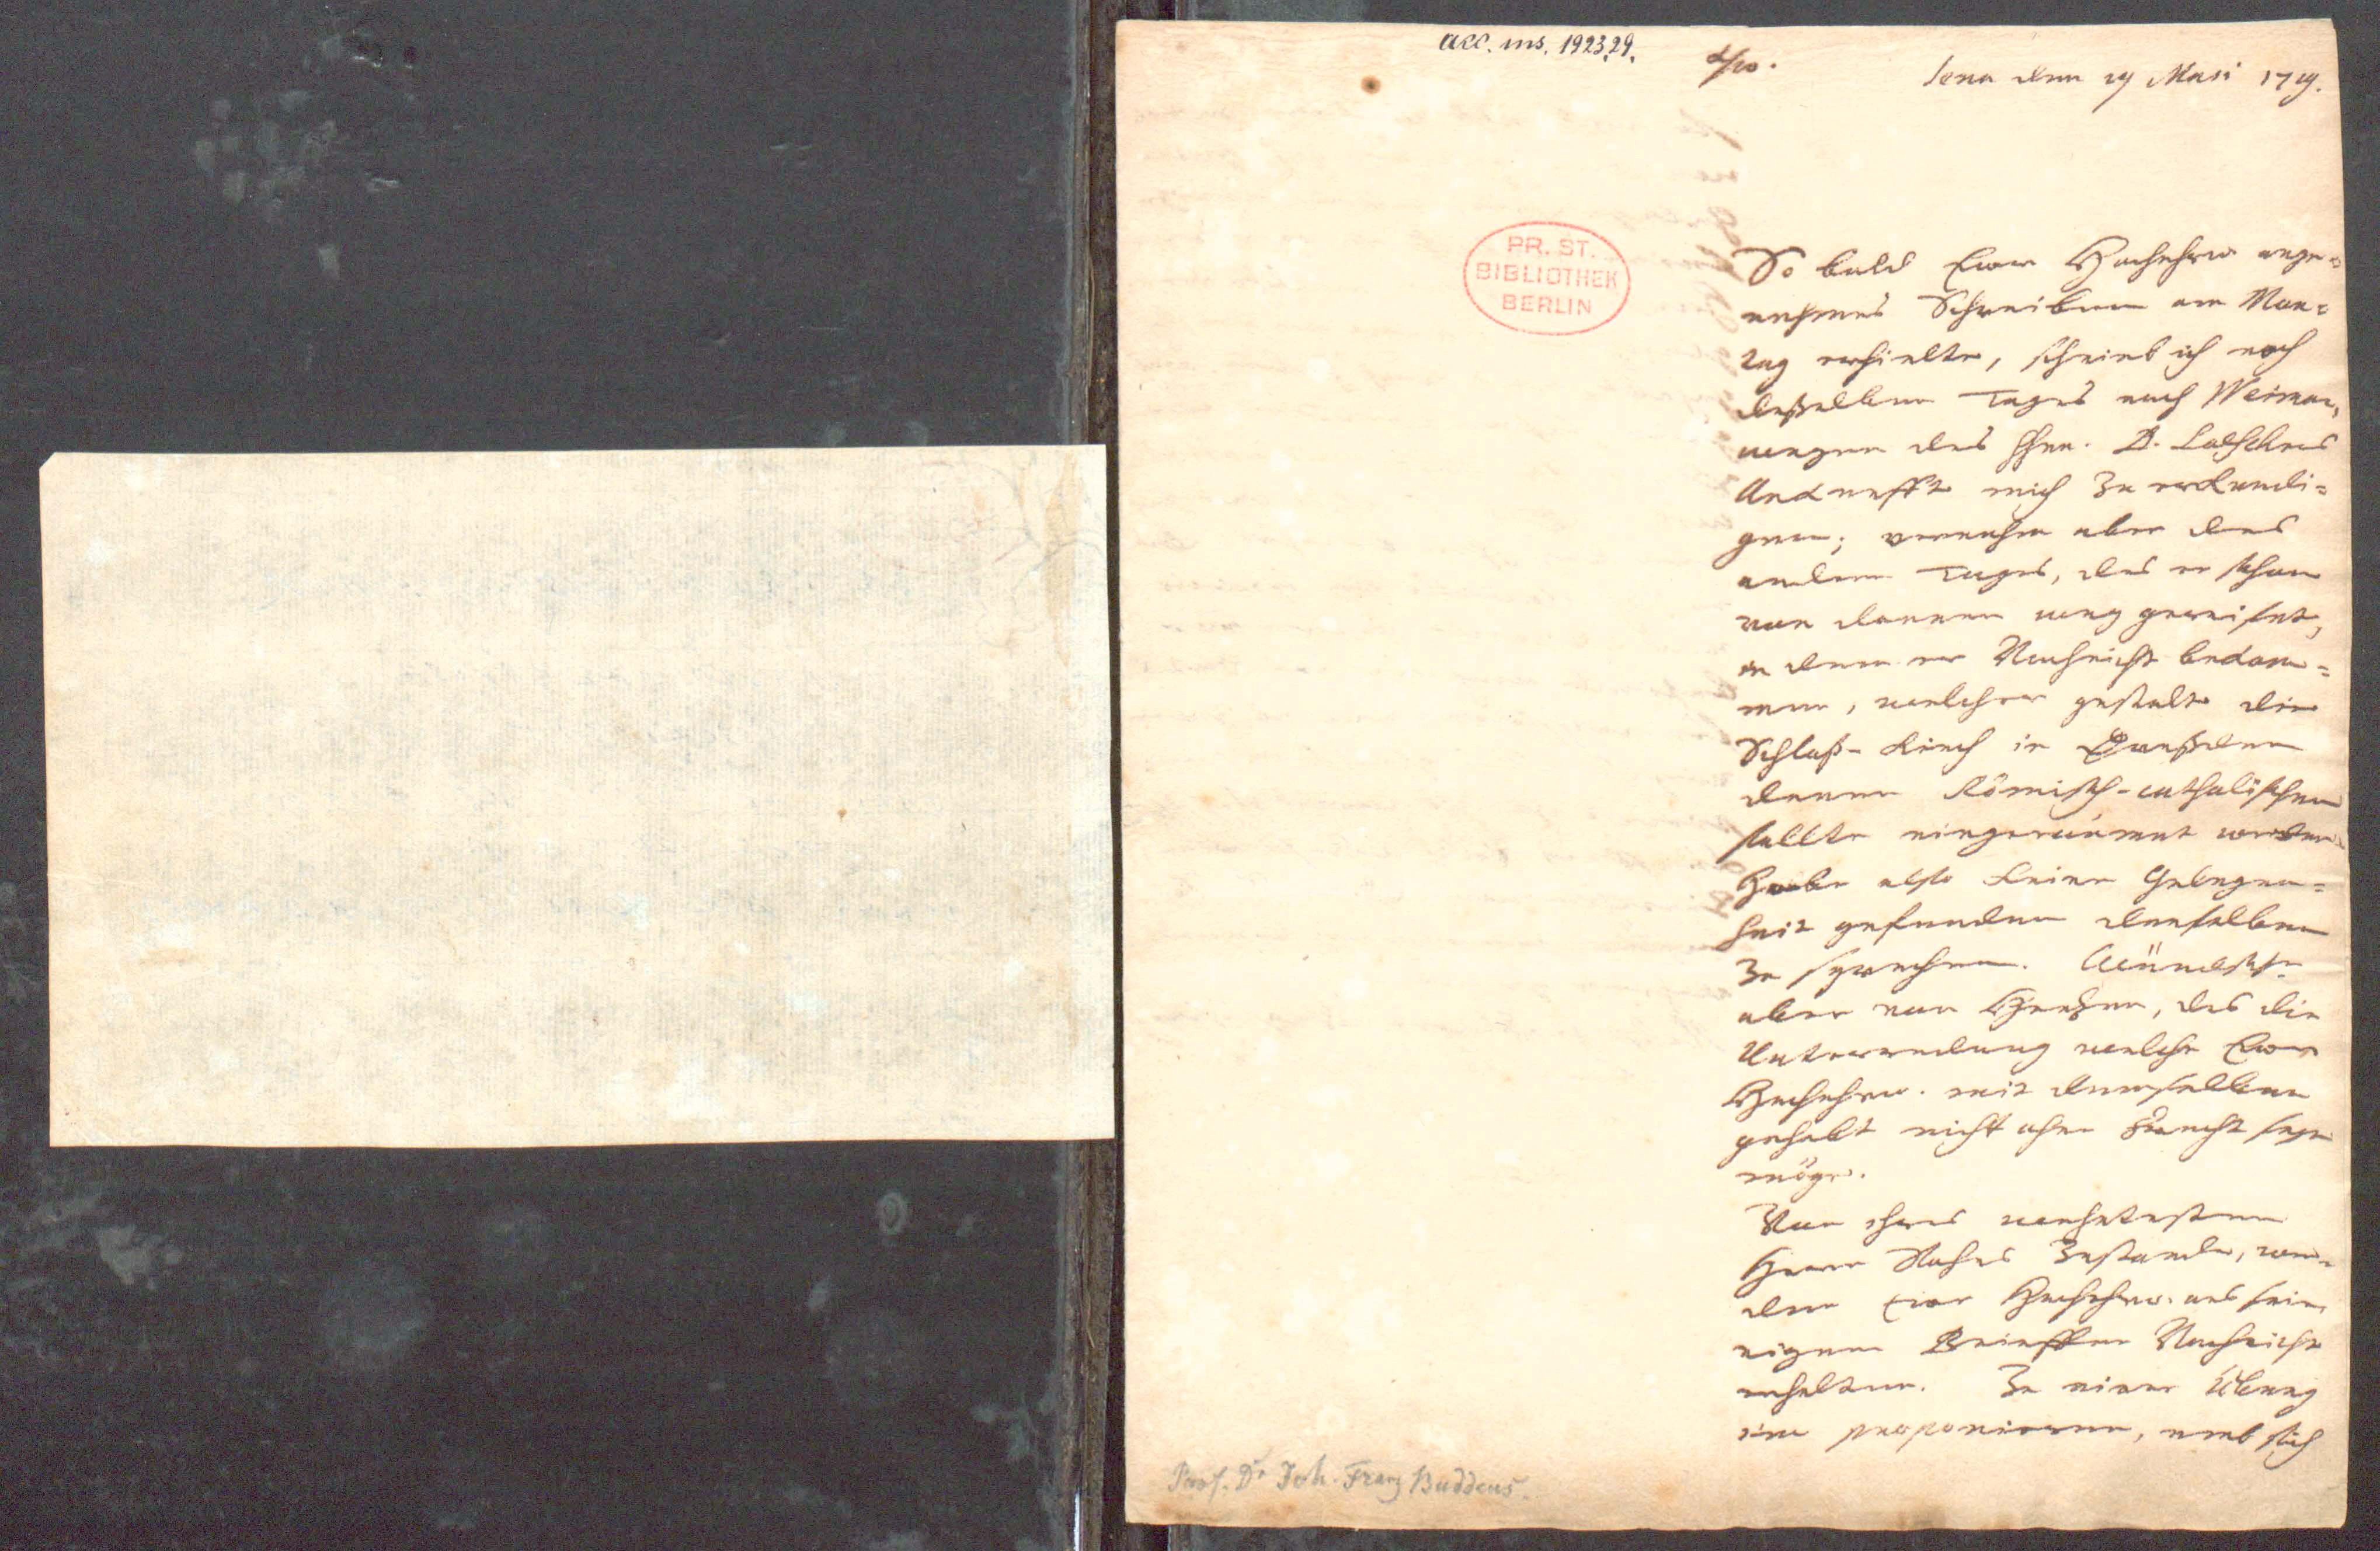 acc. ms. 1923.29.
Jena den 29 Maii 1719.
PR. ST.
BIBLIOTHEK
BERLIN
So bald Ewer HochEhrw. ange-
nehmes Schreiben am Mon-
tag erhielte, schrieb ich noch
desselben Tages nach Weimar,
wegen des Hhn. D. Löschers
Ankunfft mich zu erkundi-
gen; vernahm aber des
andern Tages, das er schon
von dannen weg gereiset,
in dem er Nachricht bekom-
men, welcher gestalt die
Schloß-Kirch in Dreßden
denen Römisch-catholischen
sollte eingeräumet werden.
Habe also keine Gelegen-
heit gefunden denselben
zu sprechen. Wündsche
aber von Hertzen, das die
Unterredung welche Ewer
HochEhrw. mit demselben
gehabt nicht ohne Frucht seyn
möge.
Von ihres werthesten
Herrn Sohnes Zustande, wer-
den Ewer HochEhrw. aus seinen
eigenen Brieffen Nachricht
erhalten. Zu einer Übung
ihm proponieren, umb sich
Prof. Dr Joh. Franz Buddeus.